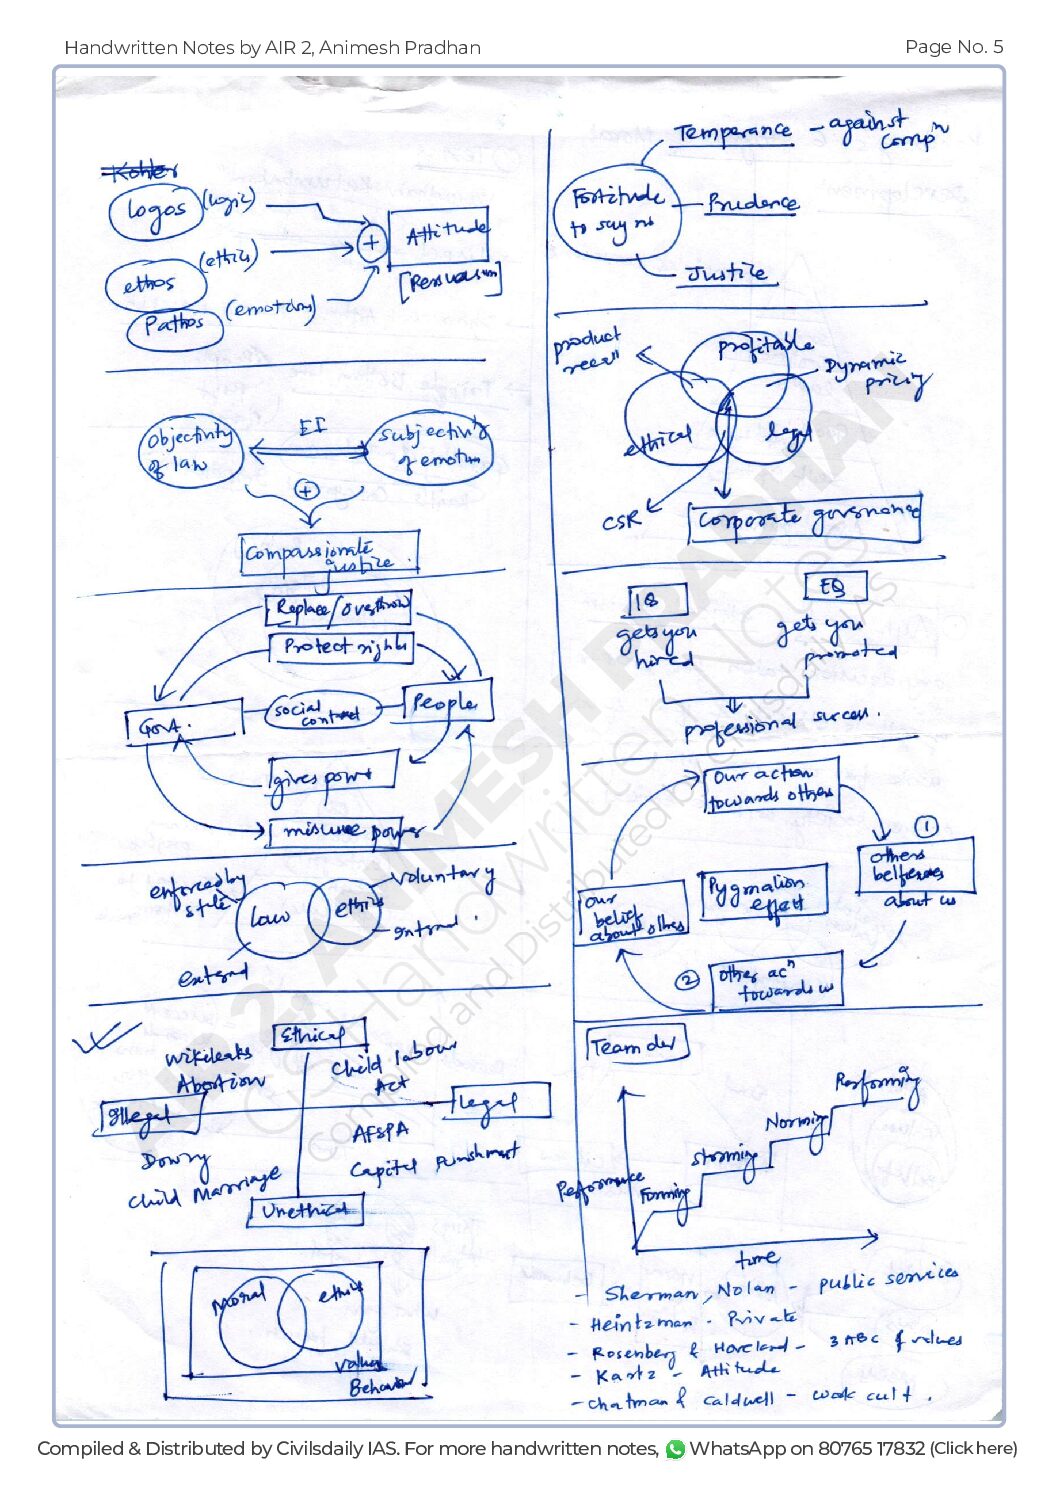 Handwritten Notes by AIR 2, Animesh Pradhan
Page No. 5
Kohler
logos (logic)
ethos (ethics)
Pathos (emotions)
+
Attitude
[Persuasion]
Objectivity
of law
EI
Subjectivity
of emotion
+
Compassionate
justice.
Replace/Overthrow
Protect rights
Govt.
social
contract
People
gives power
misuse power
enforced by
state
law
ethics
voluntary
internal.
external
Ethical
Wikileaks
Abortion
Child labour
Act
Illegal
legal
Dowry
Child Marriage
AFSPA
Capital Punishment
Unethical
Moral
ethics
Values
Behaviour
Temperance - against
compn
Fortitude
to say no
Prudence
Justice
product
recall
profitable
Dynamic
pricing
ethical
legal
CSR
Corporate governance
IQ
gets you
hired
EQ
gets you
promoted
professional success.
Our action
towards others
1
others
about us
Pygmalion
effect
our
belief
about others
2
other acn
towards us
Team dev
Performance
Forming
Storming
Norming
Performing
time
- Sherman, Nolan - public services
- Heintzman - Private
- Rosenberg & Hovland - 3 ABC of values
- Kartz - Attitude
- Chatman & Caldwell - work cult.
AIR 2, ANIMESH PRADHAN
CSE Handwritten Notes
Compiled and Distributed by Civilsdaily IAS
Compiled & Distributed by Civilsdaily IAS. For more handwritten notes, WhatsApp on 80765 17832 (Click here)